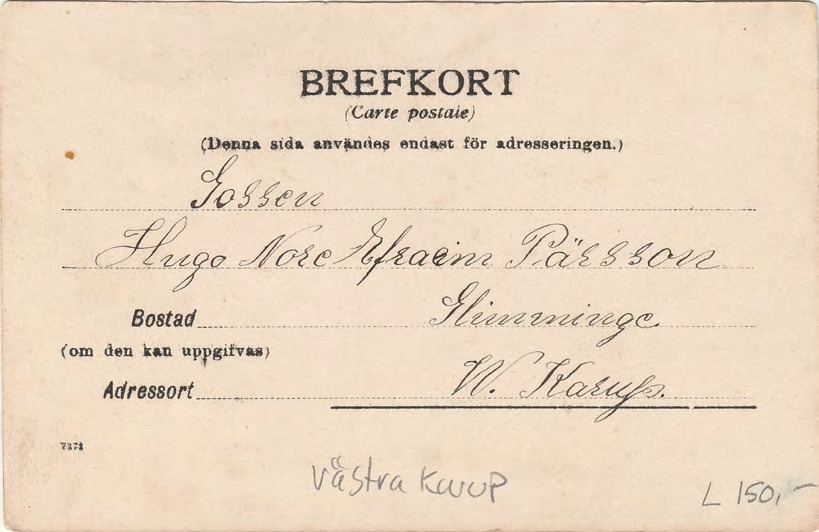 BREFKORT
(Carte postale)
(Denna sida användes endast för adresseringen.)
Gossen
Hugo Nore Efraim Pärsson
Bostad Glimminge
(om den kan uppgifvas)
Adressort W. Karup.
7373
Västra Karup
L 150,-